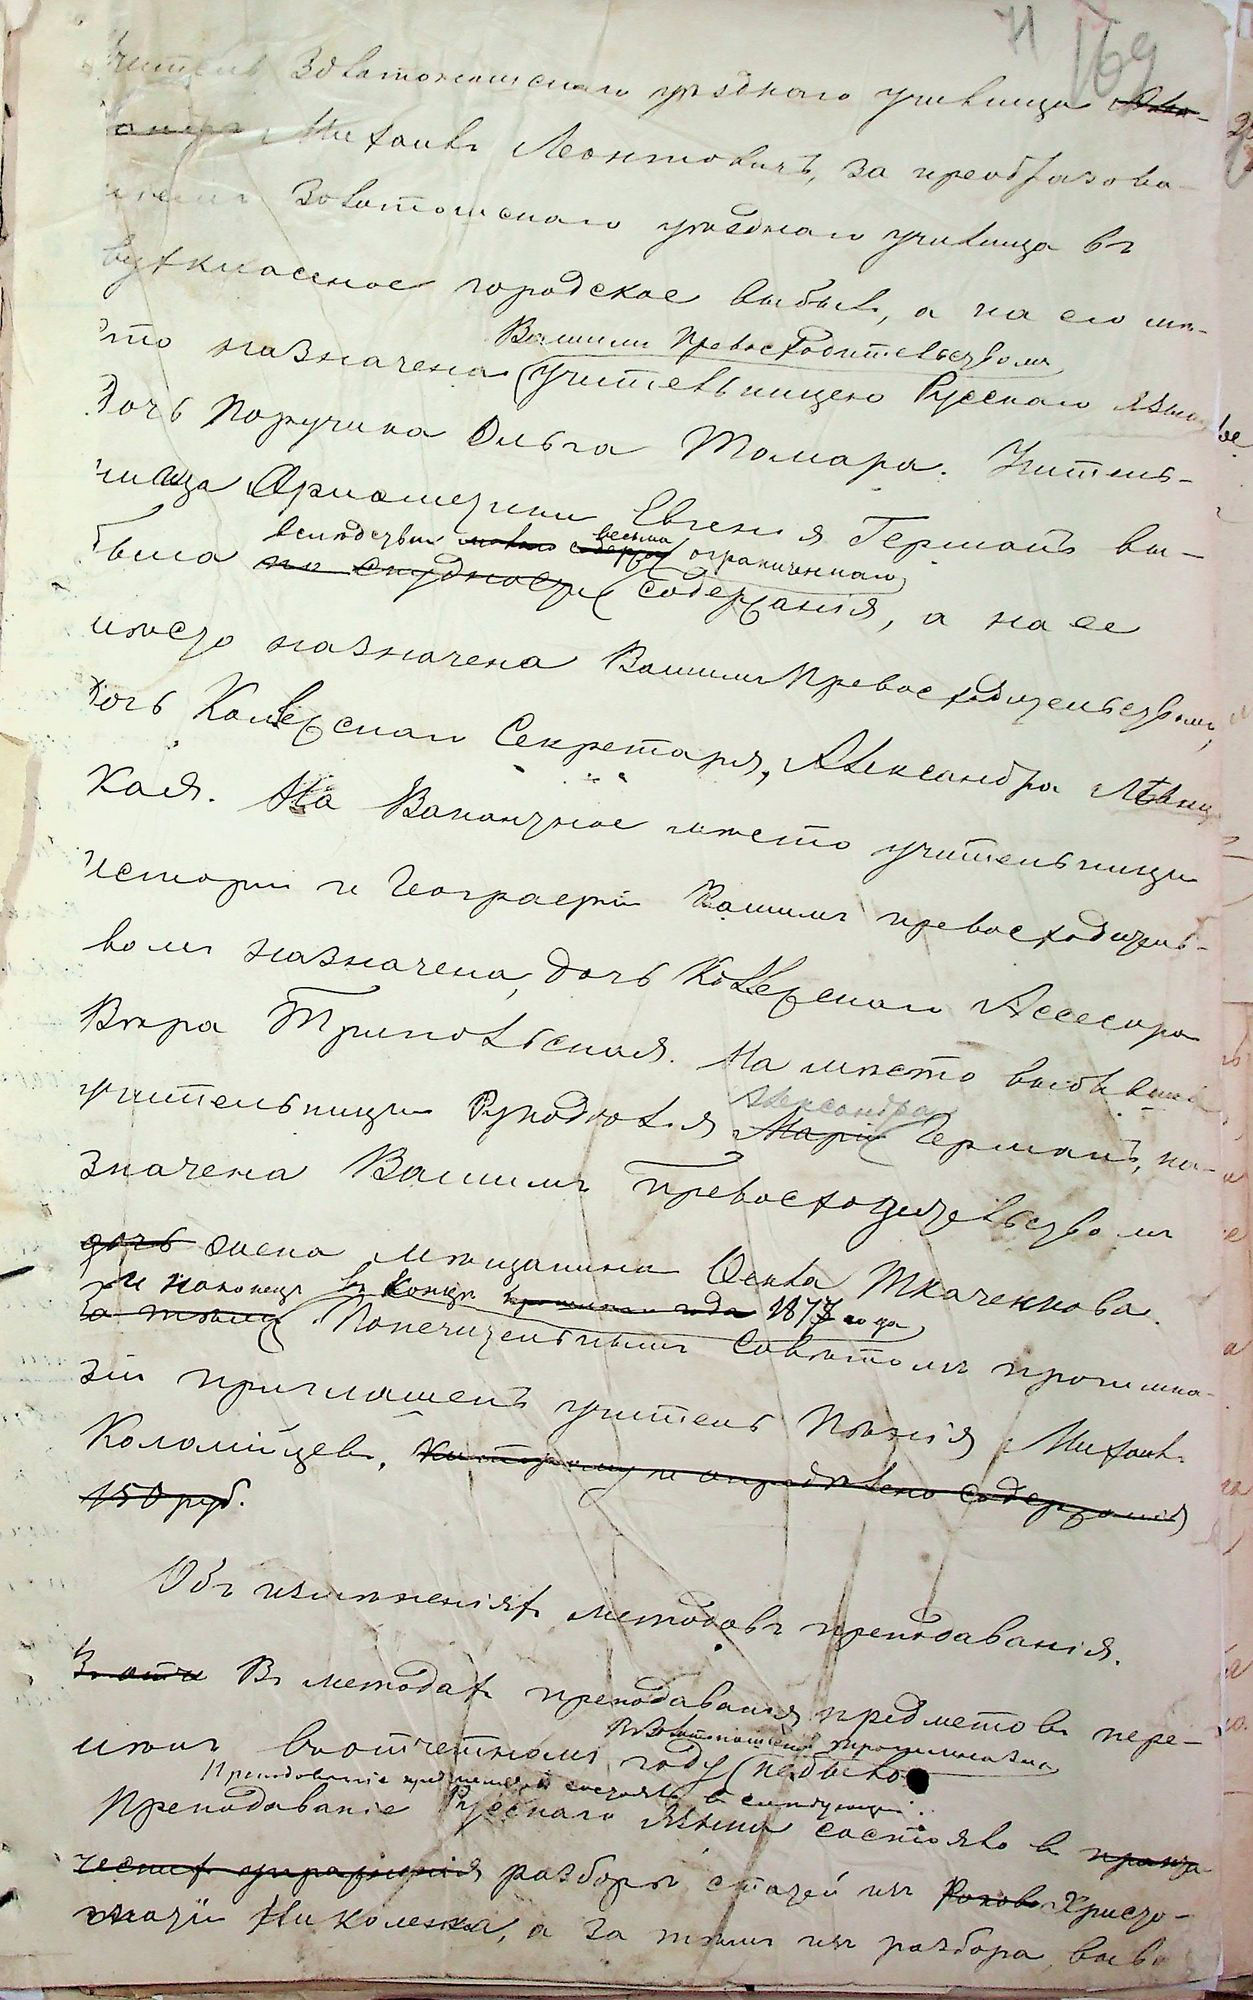 71 169
Учитель Золотоношскаго уѣзднаго училища
Михаилъ Леонтовичъ, за преобразова-
ніемъ Золотоношскаго уѣзднаго училища въ
двухклассное городское выбылъ, а на его мѣ-
Вашимъ Превосходительствомъ
сто назначена учительницею Русскаго языка
дочь Поручика Ольга Томара. Учитель-
ница Ариѳметики Евгенія Германъ вы-
вслѣдствіи весьма ограниченнаго
была по скудности содержанія, а на ее
мѣсто назначена Вашимъ Превосходительствомъ,
дочь Коллежскаго Секретаря, Александра Лѣвиц
кая. На Вакантное мѣсто учительницы
исторіи и Географіи Вашимъ превосходитель-
вомъ назначена, дочь Коллежскаго Ассесора
Вѣра Трипольская. На мѣсто выбывшей
Александра
учительницы Рукодѣлія Марія Германъ, на-
значена Вашимъ Превосходительствомъ
дочь жена мѣщанина Ѳекла Ткаченкова.
и наконецъ въ концѣ прошлаго года 1877 года,
За тѣмъ Попечительнымъ Совѣтомъ прогимна-
зіи приглашенъ учитель Пѣнія Михаилъ
Коломійцевъ, которому и опредѣлено содержанія
150 руб.
Объ измѣненіяхъ методовъ преподаванія.
Въ методахъ преподаванія предметовъ пере-
въ Золотоношской прогимназіи
мѣнъ въ отчетномъ году не было
Преподаваніе предметовъ состояло въ слѣдующемъ:
Преподаваніе Русскаго языка состояло въ практи
ческихъ упражненія разборѣ статей изъ Христо-
матіи Николенка, а за тѣмъ изъ разбора выво